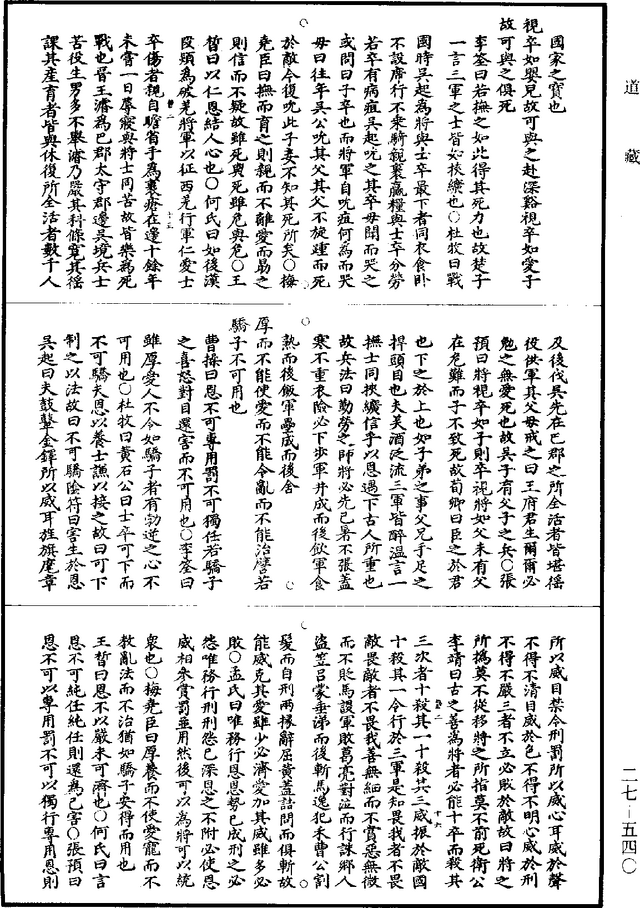 道藏
國家之寶也
視卒如嬰兒故可與之赴深谿視卒如愛子
故可與之俱死
李筌曰若撫之如此得其死力也故楚子
一言三軍之士皆如挾纊也○杜牧曰戰
國時吳起為將與士卒最下者同衣食卧
不設席行不乘騎親裹贏糧與士卒分勞
若卒有病疽吳起吮之其卒母聞而哭之
或問曰子卒也而將軍自吮疽何為而哭
毋曰往年吳公吮其父其父不旋踵而死
於敵今復吮此子妾不知其死所矣○梅
堯臣曰撫而育之則親而不離愛而勗之
則信而不疑故雖死與死雖危與危○王
晳曰以仁恩結人心也○何氏曰如後漢
段熲為破羌將軍以征西羌行軍仁愛士
卒傷者親自瞻省手為裹瘡在邊十餘年
未嘗一日蓐寢與將士同苦故皆樂為死
戰也晉王濬為巴郡太守郡邊吳境兵士
苦役生男多不舉濬乃嚴其科條寬其徭
課其產育者皆與休復所全活者數千人
及後伐吳先在巴郡之所全活者皆堪徭
役供軍其父母戒之曰王府君生爾爾必
勉之無愛死也故吳子有父子之兵○張
預曰將視卒如子則卒視將如父未有父
在危難而子不致死故荀卿曰臣之於君
也下之於上也如子弟之事父兄手足之
捍頭目也夫美酒泛流三軍皆醉溫言一
撫士同挾纊信乎以恩遇下古人所重也
故兵法曰勤勞之師將必先己暑不張蓋
寒不重衣險必下步軍井成而後飲軍食
熟而後飯軍壘成而後舍
厚而不能使愛而不能令亂而不能治譬若
驕子不可用也
曹操曰恩不可專用罰不可獨任若驕子
之喜怒對目還害而不可用也○李筌曰
雖厚愛人不令如驕子者有勃逆之心不
可用也○杜牧曰黃石公曰士卒可下而
不可驕夫恩以養士謙以接之故曰可下
制之以法故曰不可驕陰符曰害生於恩
吳起曰夫鼓鼙金鐸所以威耳旌旗麾章
所以威目禁令刑罰所以威心耳威於聲
不得不清目威於色不得不明心威於刑
不得不嚴三者不立必敗於敵故曰將之
所撝莫不從移將之所指莫不前死衛公
李靖曰古之善為將者必能十卒而殺其
三次者十殺其一十殺其三威振於敵國
十殺其一令行於三軍是知畏我者不畏
敵畏敵者不畏我善無細而不賞惡無微
而不貶馬謖軍敗葛亮對泣而行誅鄉人
盜笠呂蒙垂涕而後斬馬逸犯禾曹公割
髮而自刑兩掾辭屈黃蓋詰問而俱斬故
能威克其愛雖少必濟愛加其威雖多必
敗○孟氏曰唯務行恩恩勢已成刑之必
怨唯務行刑刑怨已深恩之不附必使恩
威相參賞罰並用然後可以為將可以統
衆也○梅堯臣曰厚養而不使愛寵而不
教亂法而不治猶如驕子安得而用也
王晳曰恩不以嚴未可濟也○何氏曰言
恩不可純任純任則還為己害○張預曰
恩不可以專用罰不可以獨行專用恩則
二七－五四〇